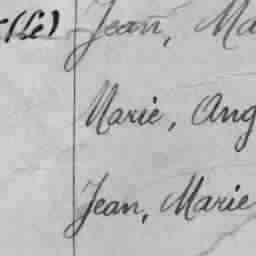 (Le) Jean, Ma
Marie, Ang
Jean, Marie